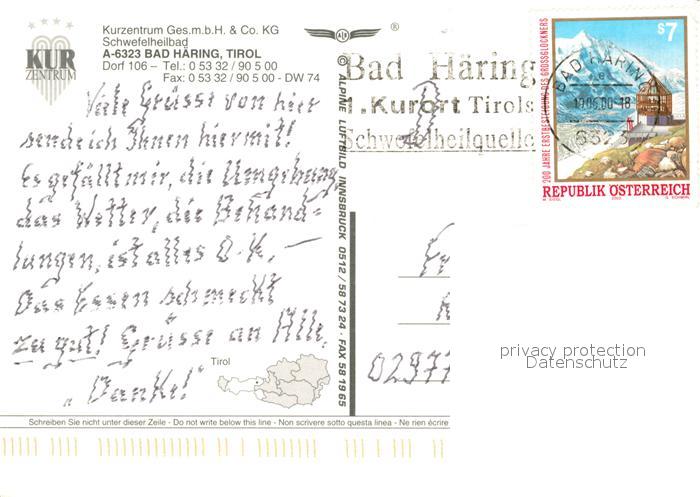 KUR
ZENTRUM
Kurzentrum Ges.m.b.H. & Co. KG
Schwefelheilbad
A-6323 BAD HÄRING, TIROL
Dorf 106 – Tel.: 0 53 32 / 90 5 00
Fax: 0 53 32 / 90 5 00 - DW 74
® 
Bad Häring
1. Kurort Tirols
Schwefelheilquelle
BAD HÄRING
6323
S7
200 JAHRE ERSTBESTEIGUNG DES GROSSGLOCKNERS
REPUBLIK ÖSTERREICH
Viele Grüsse von hier
sende ich Ihnen hiermit!
Es gefällt mir, die Umgebung,
das Wetter, die Behand=
lungen, ist alles O.K. –
Das Essen schmeckt
zu gut! Grüsse an Alle,
"Danke!"
© ALPINE LUFTBILD INNSBRUCK 0512 / 58 73 24 · FAX 58 19 65
Tirol
privacy protection
Datenschutz
Schreiben Sie nicht unter dieser Zeile - Do not write below this line - Non scrivere sotto questa linea - Ne rien écrire